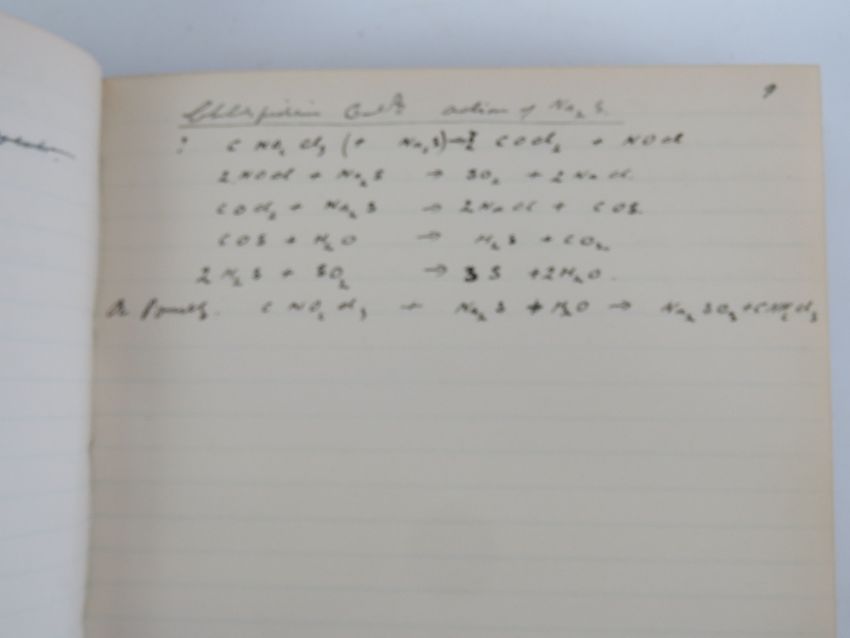 9
Chlorpicrin action of Na2 S.
? C NO2 Cl3 (+ Na2S) → COCl2 + NOCl
2NOCl + Na2S → SO2 + 2NaCl.
COCl2 + Na2S → 2NaCl + COS.
COS + H2O → H2S + CO2
2H2S + SO2 → 3S + 2H2O.
Or C NO2 Cl3 + Na2S + H2O → Na2SO3 +